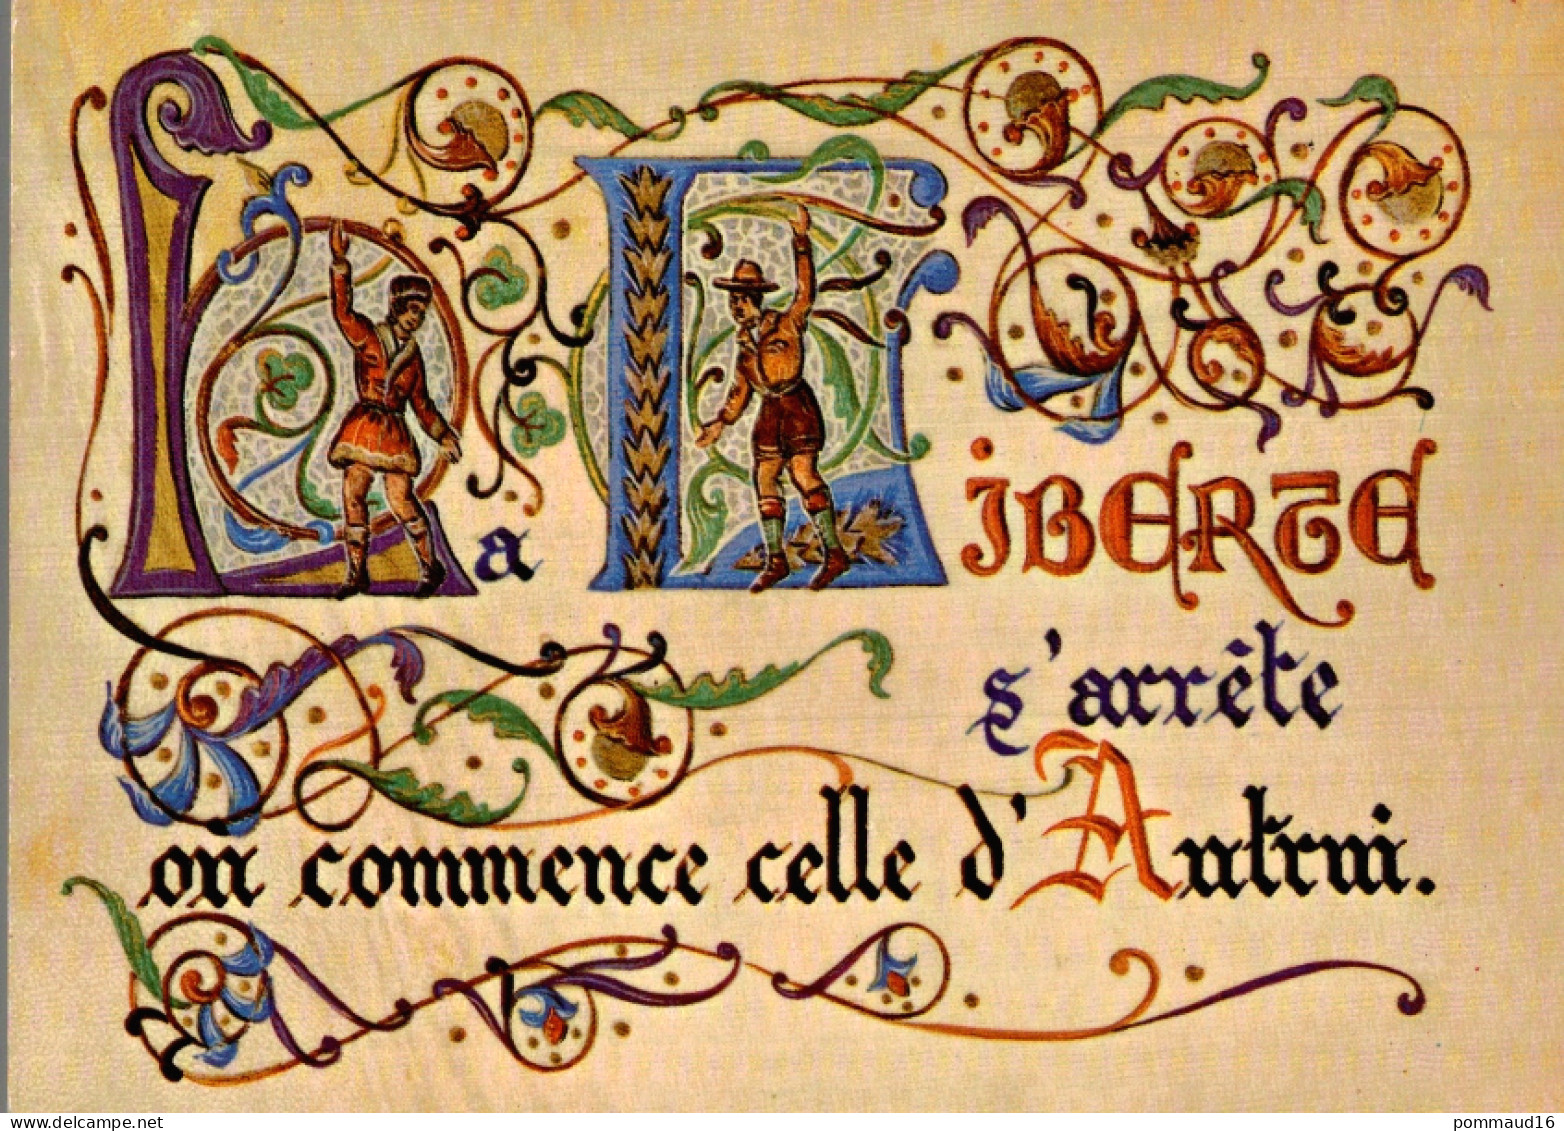 La LIBERTE
s'arrête
où commence celle d'Autrui.
delcampe.net
pommaud16